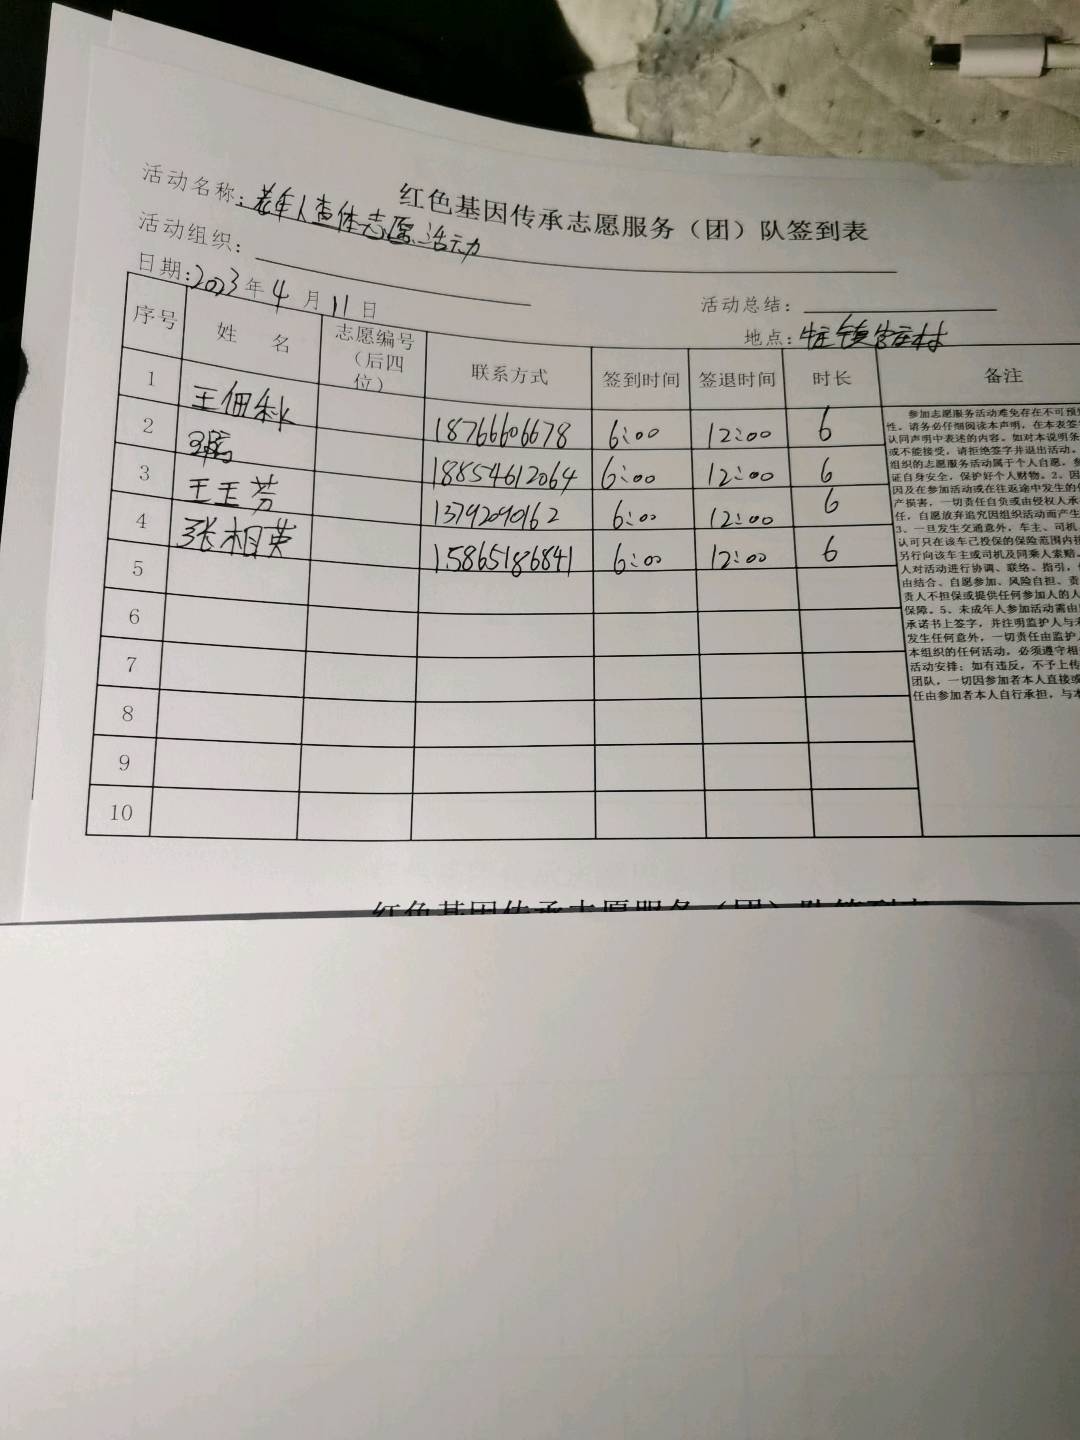 红色基因传承志愿服务（团）队签到表
活动名称：老年人查体志愿活动
活动组织：
活动总结：
日期：2023年4月11日
地点：
序号 姓 名 志愿编号（后四位） 联系方式 签到时间 签退时间 时长 备注
1 王佃秋 18766606678 6:00 12:00 6
2 18854612064 6:00 12:00 6
3 王玉芳 13792090162 6:00 12:00 6
4 张相英 15865186841 6:00 12:00 6
5
6
7
8
9
10
参加志愿服务活动难免存在不可预
性。请务必仔细阅读本声明，在本表签
认同声明中表述的内容。如对本说明条
或不能接受，请拒绝签字并退出活动。
组织的志愿服务活动属于个人自愿。参
证自身安全，保护好个人财物。2、因
因及在参加活动或在往返途中发生的
产损害，一切责任自负或由侵权人承
任，自愿放弃追究因组织活动而产生
3、一旦发生交通意外，车主、司机
认可只在该车已投保的保险范围内
另行向该车主或司机及同乘人索赔。
人对活动进行协调、联络、指引，
由结合、自愿参加、风险自担、责
责人不担保或提供任何参加人的人
保障。5、未成年人参加活动需由
承诺书上签字，并注明监护人与
发生任何意外，一切责任由监护
本组织的任何活动，必须遵守相
活动安排；如有违反，不予上传
团队，一切因参加者本人直接或
任由参加者本人自行承担，与本
红色基因传承志愿服务（团）队签到表